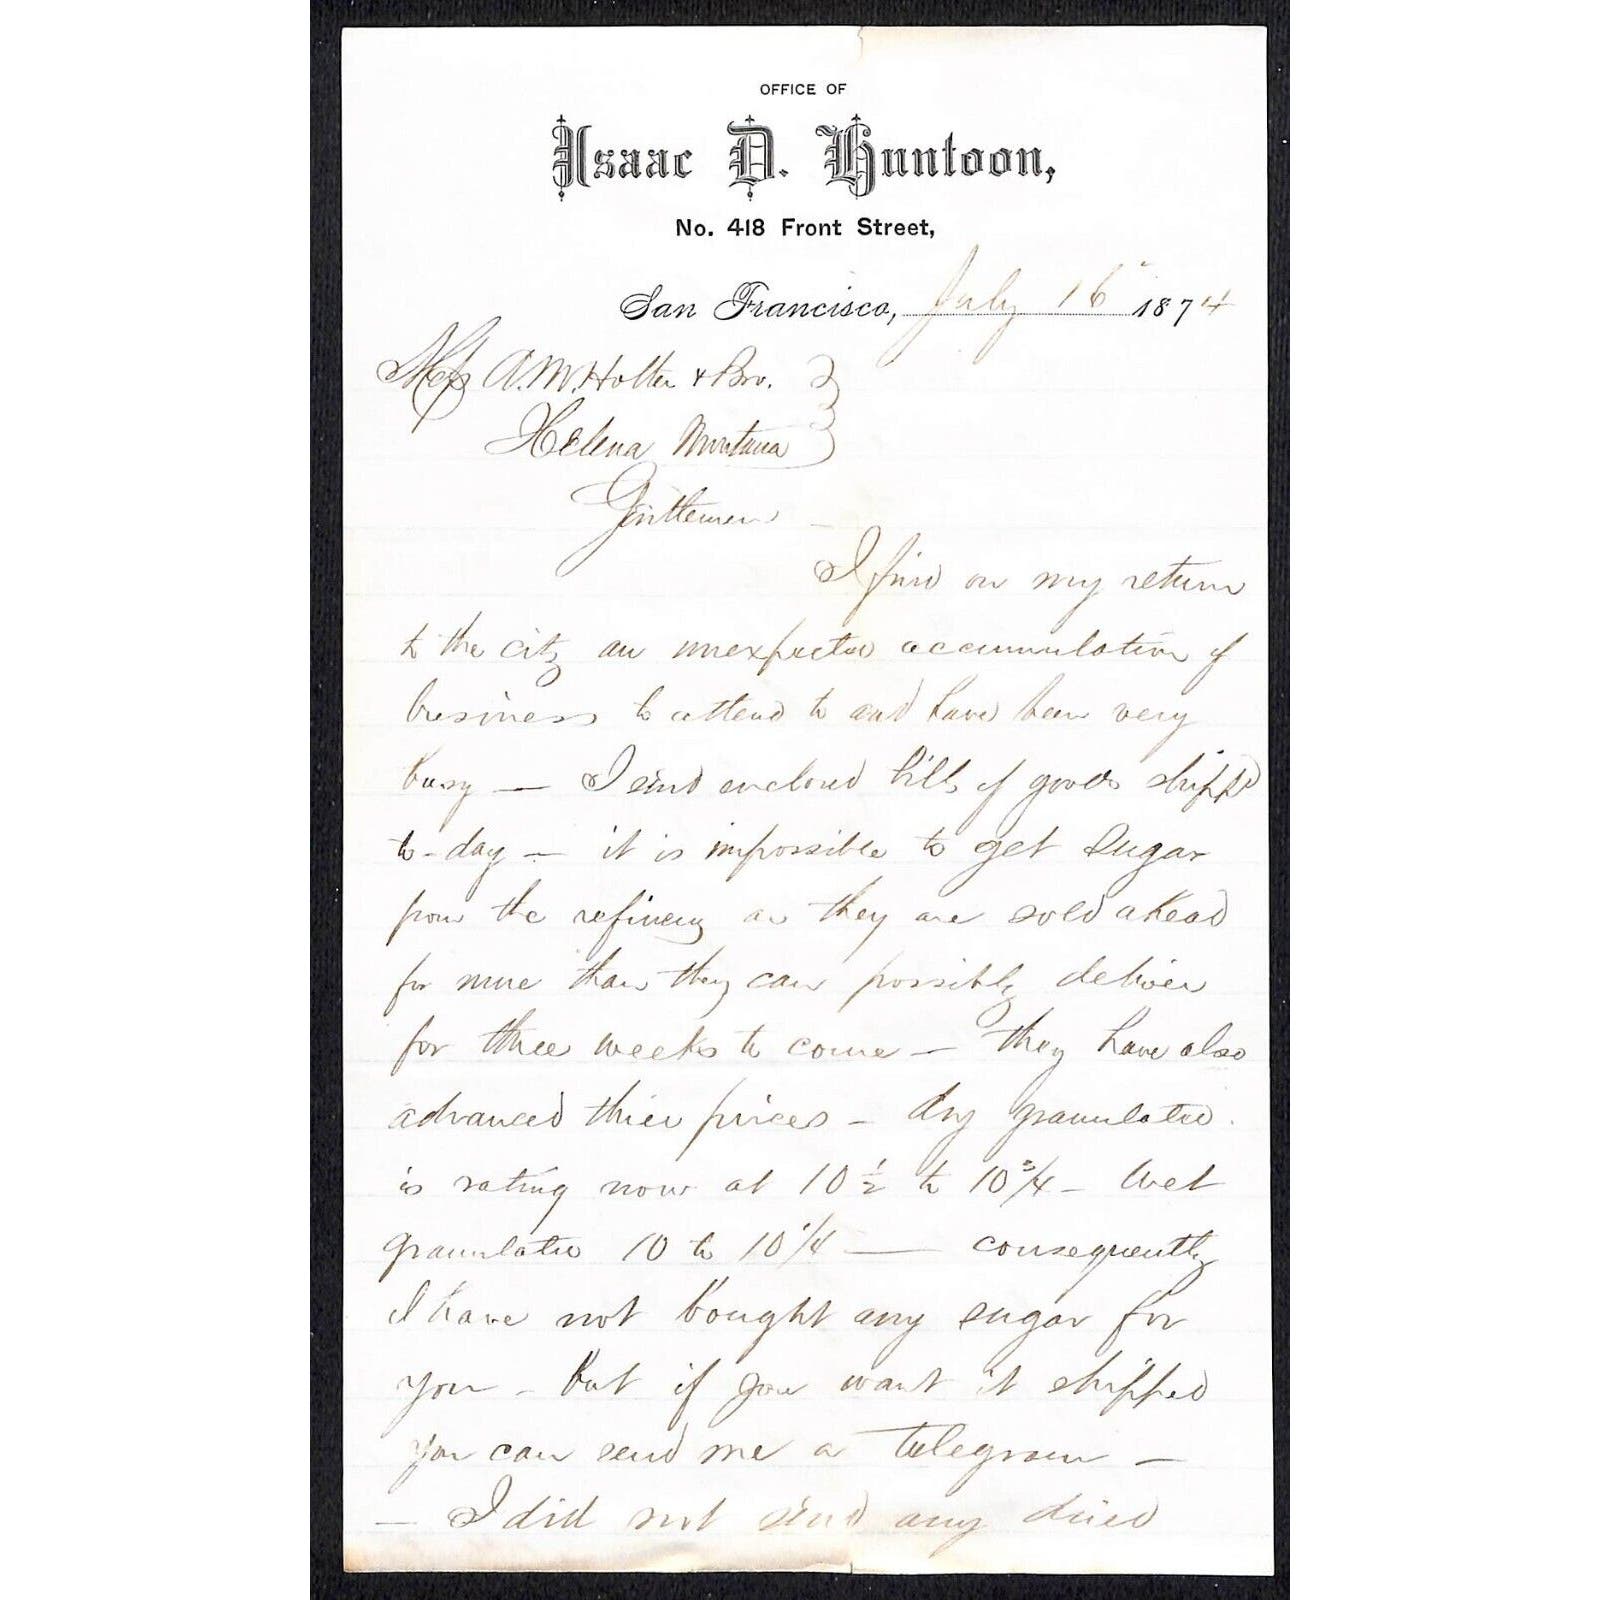 OFFICE OF
Isaac D. Huntoon,
No. 418 Front Street,
San Francisco, July 16" 1874
Messrs A. M. Holter & Bro.
Helena Montana
Gentlemen
I find on my return
to the city an unexpected accumulation of
business to attend to and have been very
busy — I send enclosed bills of goods shipp'd
to-day — it is impossible to get Sugar
from the refinery as they are sold ahead
for more than they can possibly deliver
for three weeks to come — they have also
advanced thier prices — dry granulated
is rating now at 10 1/2 to 10 3/4 — Wet
granulated 10 to 10 1/4 — consequently
I have not bought any sugar for
you — but if you want it shipped
you can send me a telegram —
— I did not send any dried